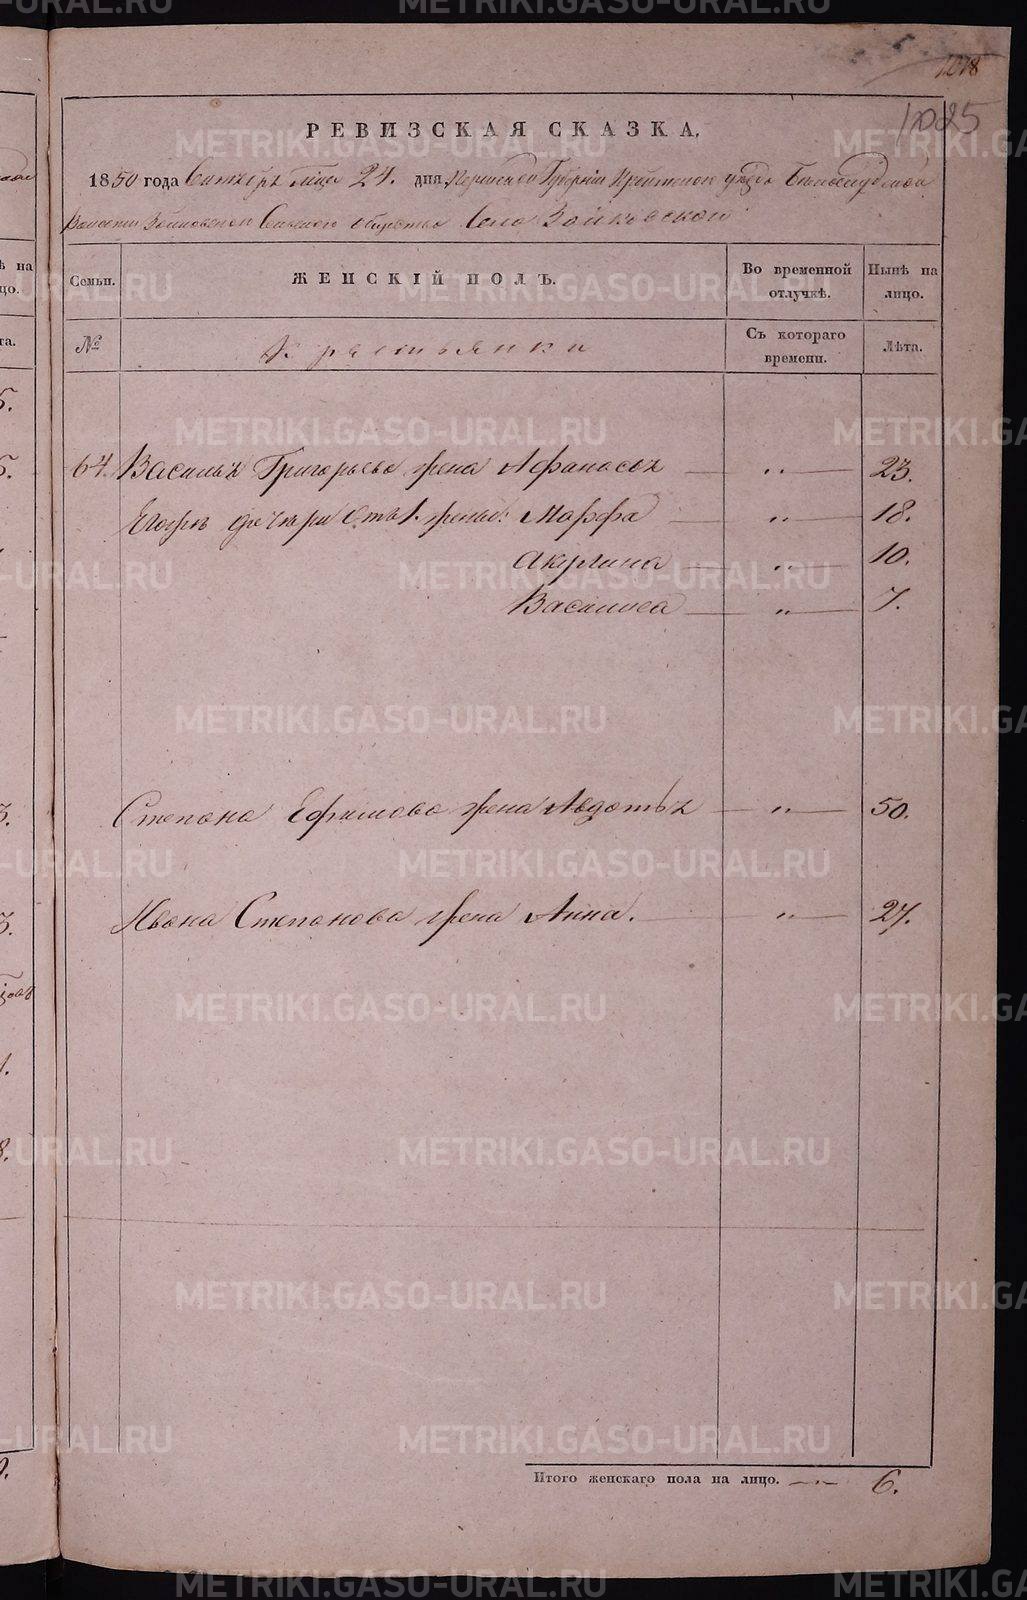 1018
1025
РЕВИЗСКАЯ СКАЗКА,
1850 года Октября м‑ца 24. дня Пермской Губернiи Ирбитскаго уѣзда Бѣлослудской
Волости Зайковскаго Сельскаго общества Села Зайковской
Семьи. ЖЕНСКIЙ ПОЛЪ. Во временной отлучкѣ. Нынѣ на лицо.
№ Крестьянки Съ котораго времени. Лѣта.
64. Василья Григорьева жена Афанасья — „ — 23.
Егора дочери отъ 1. жены: Марфа — „ — 18.
Акулина — „ — 10.
Василиса — „ — 7.
Степана Ефимова жена Авдотья — „ — 50.
Ивана Степанова жена Анна. — „ — 27.
Итого женскаго пола на лицо. — „ — 6.
METRIKI.GASO-URAL.RU